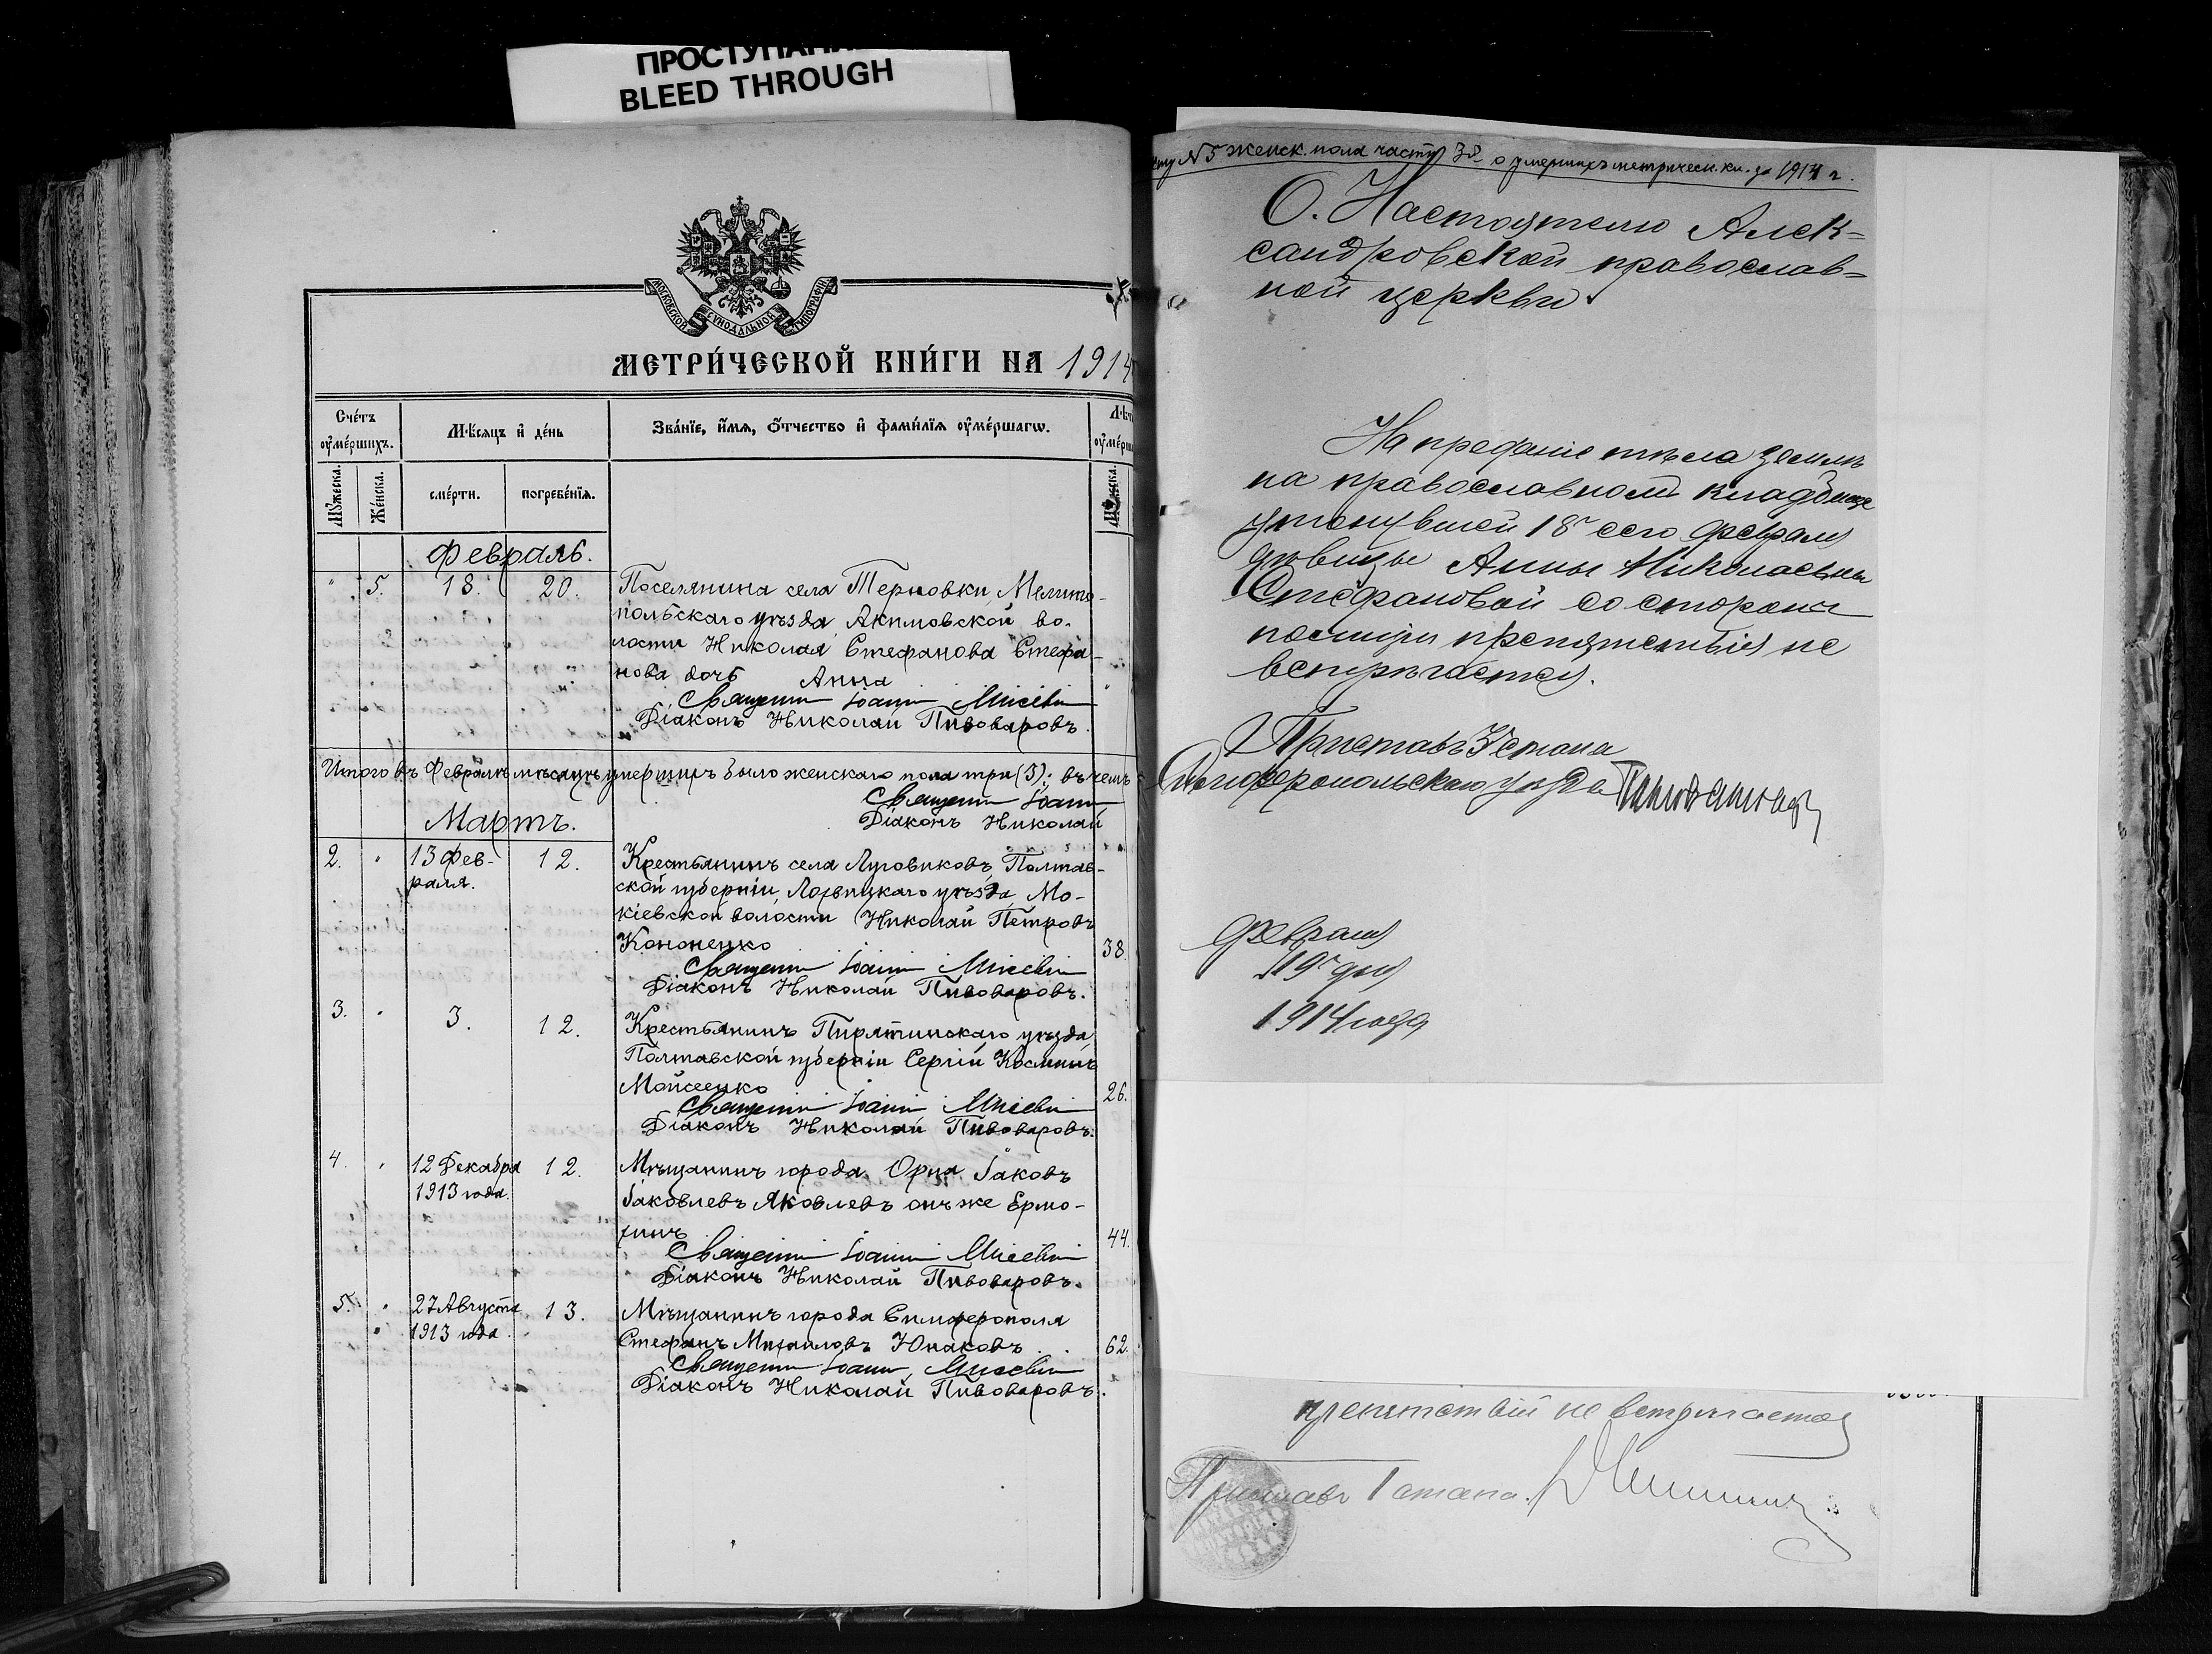 ПРОСТУПАНИЕ
BLEED THROUGH
МОСКОВСКОЙ СѴНОДАЛЬНОЙ ТИПОГРАФІИ
МЕТРИ́ЧЕСКОЙ КНИ́ГИ НА 1914
Сче́тъ оу҆ме́ршихъ.
Мѣ́сяцъ и҆ де́нь
Зва́нїе, и҆́мѧ, ѻ҆́тчество и҆ фами́лїѧ оу҆ме́ршагѡ.
Лѣ́та
оу҆ме́рш
Мꙋ́жеска.
Же́нска.
сме́рти.
погребе́нїѧ.
Мꙋ́жеска.
Февраль.
" 5. 18. 20. Поселянина села Терновки, Мелито-
польскаго уѣзда Акимовской во-
лости Николая Стефанова Стефа-
нова дочь Анна
Священн Іоанн
Діаконъ Николай Пивоваровъ.
Итого въ Февралѣ мѣсяцѣ умершихъ было женскаго пола три (3); въ чемъ
Священн Іоанн
Діаконъ Николай
Мартъ.
2. " 13 Фев- 12. Крестьянинъ села Луговиковъ, Полтав-
раля. ской губерніи, Лохвицкаго уѣзда, Мо-
кіевской волости Николай Петровъ
Кононенко 38.
Священн Іоанн
Діаконъ Николай Пивоваровъ.
3. " 3. 12. Крестьянинъ Пирятинскаго уѣзда
Полтавской губерніи Сергій Косминъ
Мойсеенко 26.
Священн Іоанн
Діаконъ Николай Пивоваровъ.
4. " 12 Декабря 12. Мѣщанинъ города Орла Іаковъ
1913 года. Іаковлевъ Яковлевъ онъ же Ермо-
хинъ 44.
Священн Іоанн
Діаконъ Николай Пивоваровъ.
5. " 27 Августа 13. Мѣщанинъ города Симферополя
1913 года. Стефанъ Михаиловъ Юнаковъ 62.
Священн Іоанн
Діаконъ Николай Пивоваровъ.
N 5 женск. пола части 3й о умершихъ метрическ. кн. за 1914 г.
О. Настоятелю Алек=
сандровской православ=
ной церкви.
На преданіе тѣла землѣ
на православномъ кладбище
утонувшей 18го сего февраля
дѣвицы Анны Николаевны
Стефановой со стороны
полиціи препятствія не
встрѣчается.
Приставъ 3 стана
Симферопольскаго уѣзда
Февраля
19го дня
1914 года
препятствій не встрѣчается
Приставъ 1 стана.